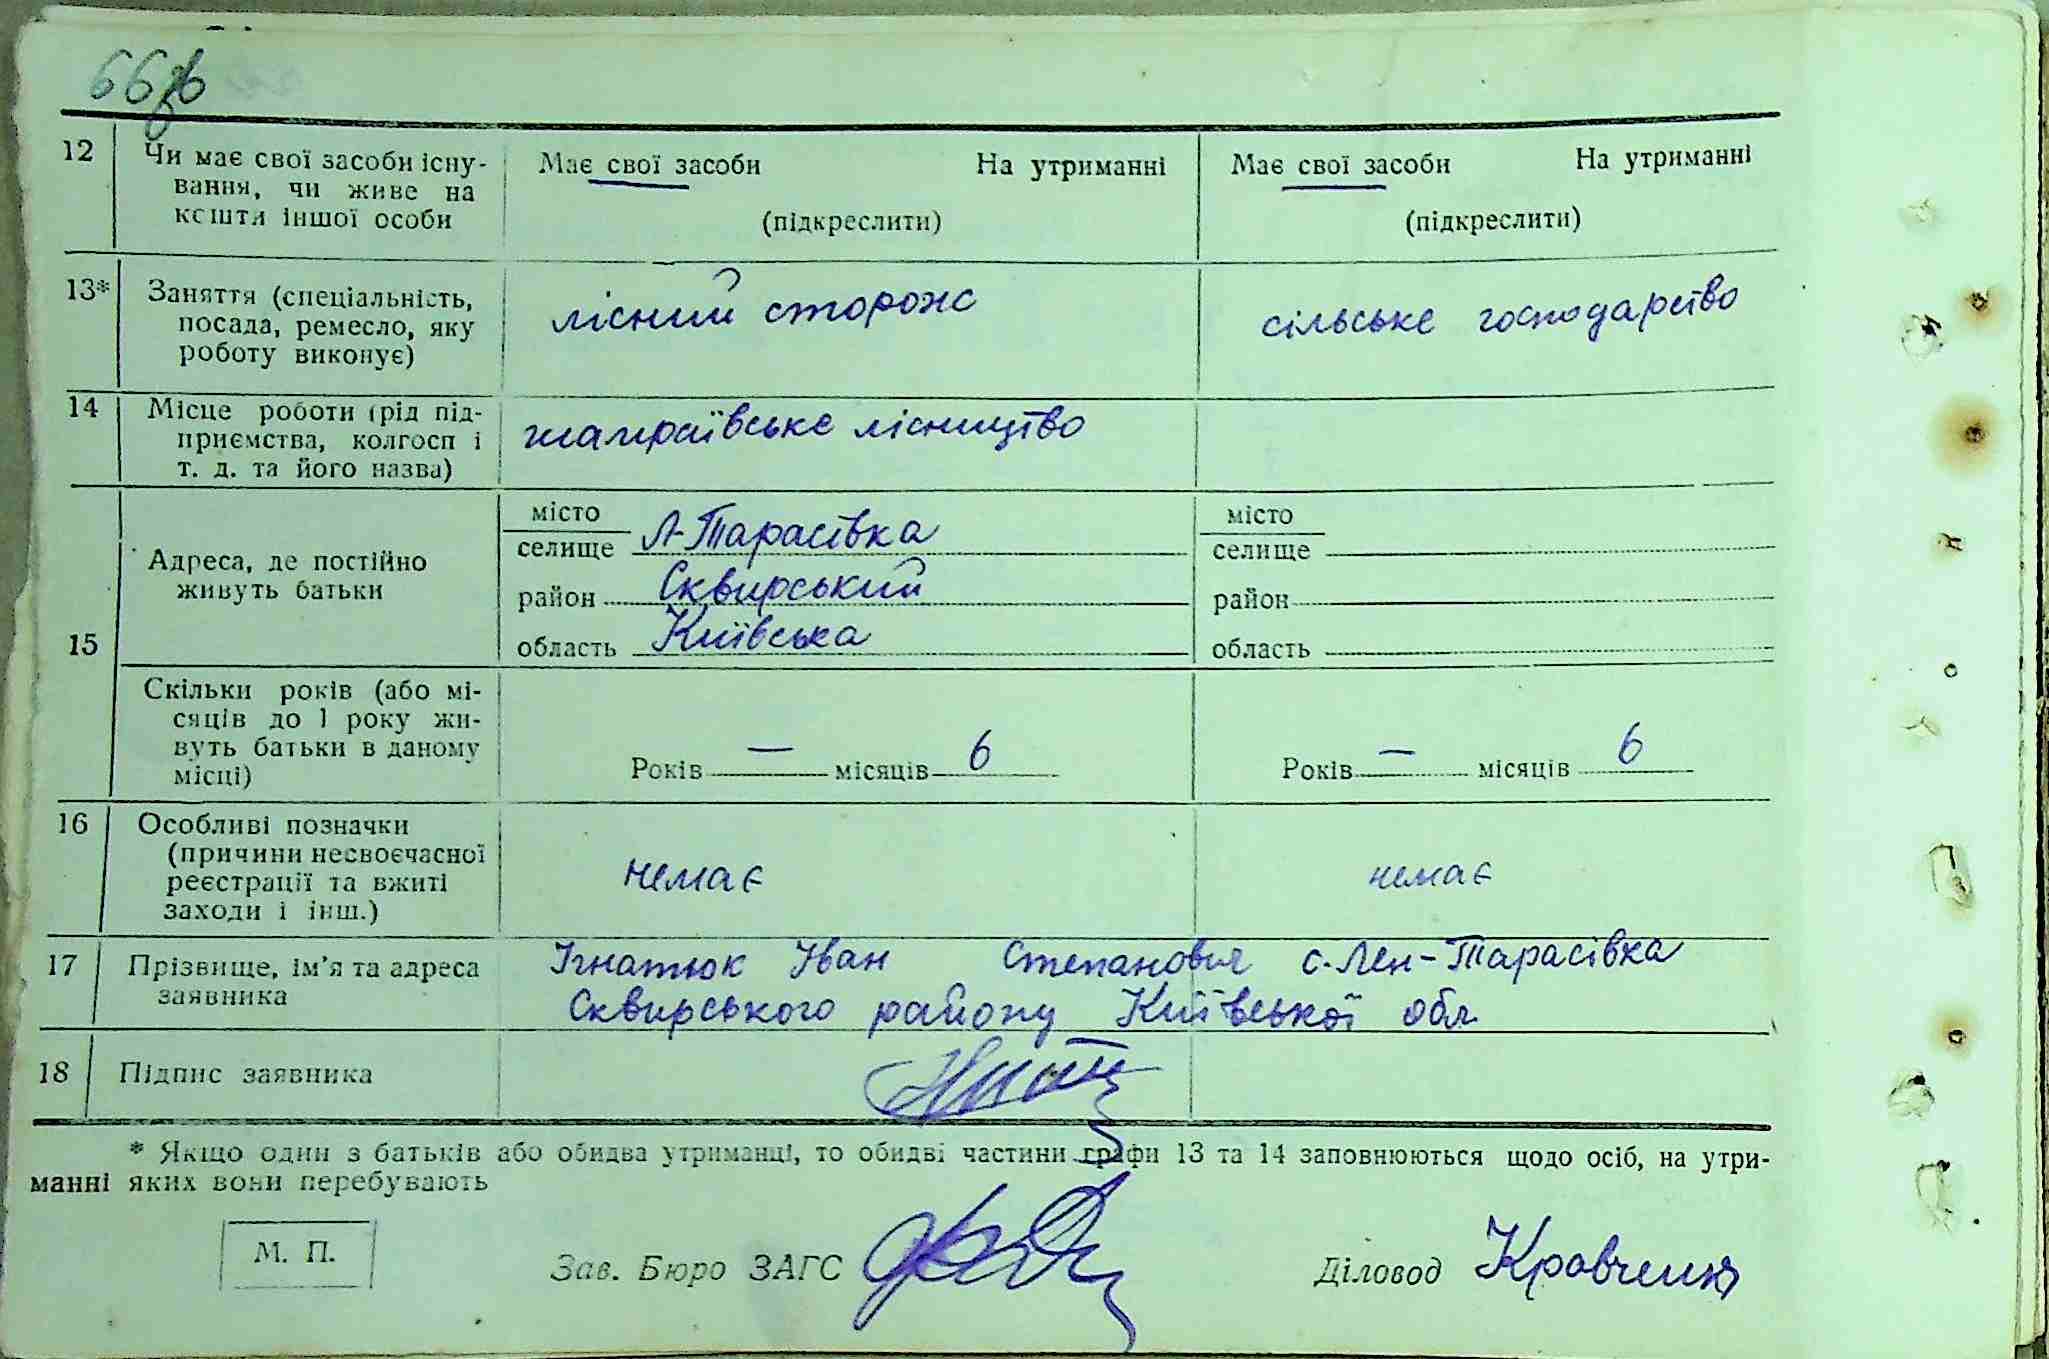 66зв
12 Чи має свої засоби існу-
вання, чи живе на
кошти іншої особи
Має свої засоби На утриманні
(підкреслити)
Має свої засоби На утриманні
(підкреслити)
13* Заняття (спеціальність,
посада, ремесло, яку
роботу виконує)
лісний сторож
сільське господарство
14 Місце роботи (рід під-
приємства, колгосп і
т. д. та його назва)
лісництво
15
Адреса, де постійно
живуть батьки
місто
селище Л-Тарасівка
район Сквирський
область Київська
місто
селище
район
область
Скільки років (або мі-
сяців до 1 року жи-
вуть батьки в даному
місці)
Років — місяців 6
Років — місяців 6
16 Особливі позначки
(причини несвоєчасної
реєстрації та вжиті
заходи і інш.)
немає
немає
17 Прізвище, ім'я та адреса
заявника
Ігнатюк Іван Степанович с. Лен-Тарасівка
Сквирського району Київської обл
18 Підпис заявника
* Якщо один з батьків або обидва утриманці, то обидві частини графи 13 та 14 заповнюються щодо осіб, на утри-
манні яких вони перебувають
М. П.
Зав. Бюро ЗАГС
Діловод Кравченко